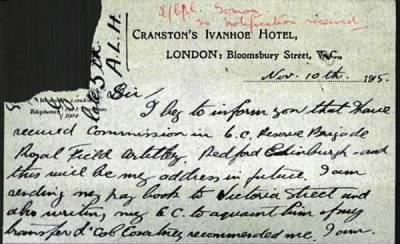 L/Cpl. Soman
no notification received
CRANSTON'S IVANHOE HOTEL,
LONDON: Bloomsbury Street, W.C.,
A.L.H.
Nov. 10th. 1915.
1904
Sir/
I beg to inform you that I have
received Commission in 6.C. Reserve Brigade
Royal Field Artillery, Redford Edinburgh - and
this will be my address in future. I am
sending my pay book to Victoria Street and
also writing my C to acquaint him of my
transfer Lt Col recommended me. I am